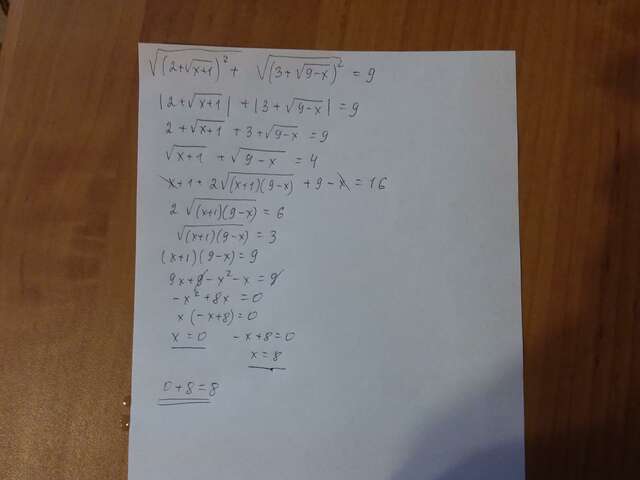 √((2+√(x+1))²) + √((3+√(9-x))²) = 9
|2+√(x+1)| + |3+√(9-x)| = 9
2+√(x+1) + 3+√(9-x) = 9
√(x+1) + √(9-x) = 4
x+1+2√((x+1)(9-x)) + 9-x = 16
2√((x+1)(9-x)) = 6
√((x+1)(9-x)) = 3
(x+1)(9-x) = 9
9x+9-x²-x = 9
-x²+8x = 0
x(-x+8) = 0
x = 0 -x+8 = 0
x = 8
0+8 = 8